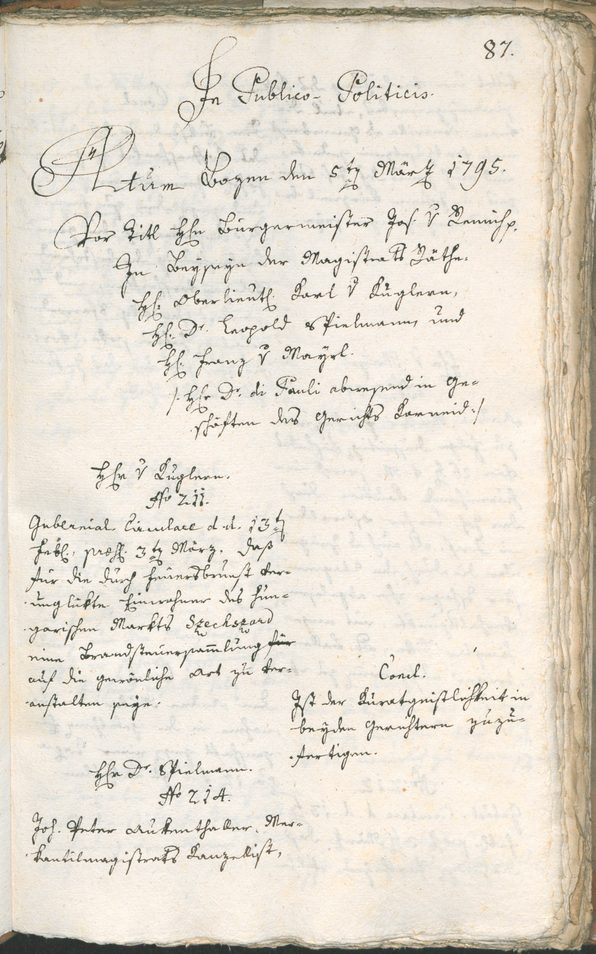 87.
In Publico-Politicis.
Actum Bozen den 5ten März 1795.
Vor Titl Hhn Bürgermeister Jos. v
In Beyseyn der Magistrats Räthe.
Hh. Oberlieut. Karl v Kuglern,
Hh. Dr. Leopold Spielmann, und
Hh. Franz v Mayrl.
/: Hhr Dr. di Pauli abwesend in Ge-
schäften des Gerichts Karneid :/
Hhr v Kuglern.
No 211.
Gubernial Circulare d. d. 13t
Febr., præs. 3ten März. daß
für die durch Feuersbrunst ver-
unglükte Einwohner des Hun-
garischen Markts Szechszard
eine Brandsteuersammlung für
auf die gewönliche Art zu ver-
anstalten seye.
Concl.
Ist der Kuratgeistlichkeit in
beyden Gerichtern zuzu-
fertigen.
Hhr Dr. Spielmann.
No 214.
Joh. Peter Aukenthaller, Mer-
kantilmagistrats Kanzellist,